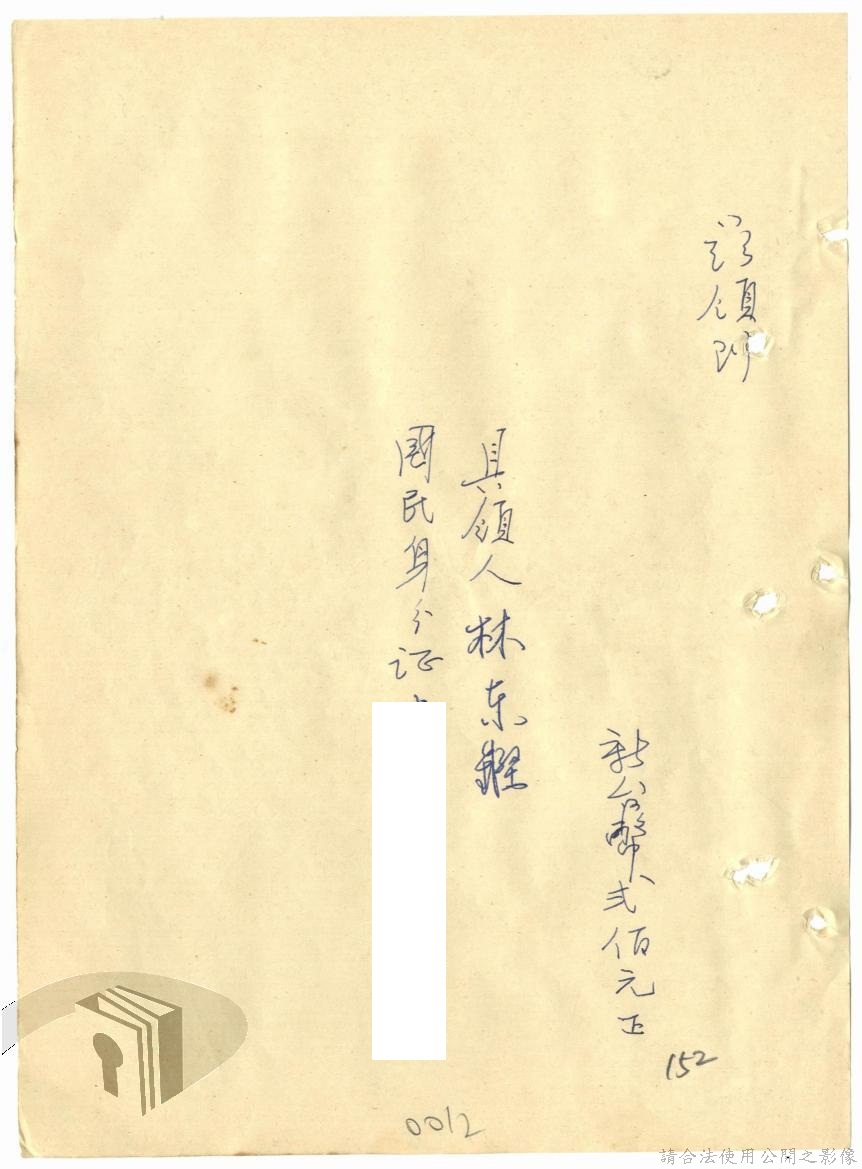 茲領到
新台幣弍佰元正
具領人 林东鏗
國民身分证
152
0012
請合法使用公開之影像